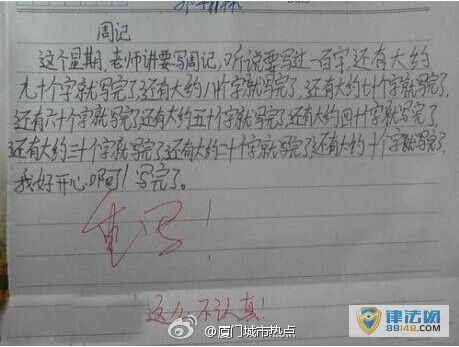 周记
这个星期,老师讲要写周记,听说要写过一百字还有大约
九十个字就写完了,还有大约八十个字就写完了,还有大约七十个字就写完了,
还有六十个字就写完了还有大约五十个字就写完了还有大约四十个字就写完了
还有大约三十个字就写完了还有大约二十个字就写完了,还有大约十个字就写完了,
我好开心啊!写完了。
重写!
这么不认真!
@厦门城市热点
律法网
88148.com